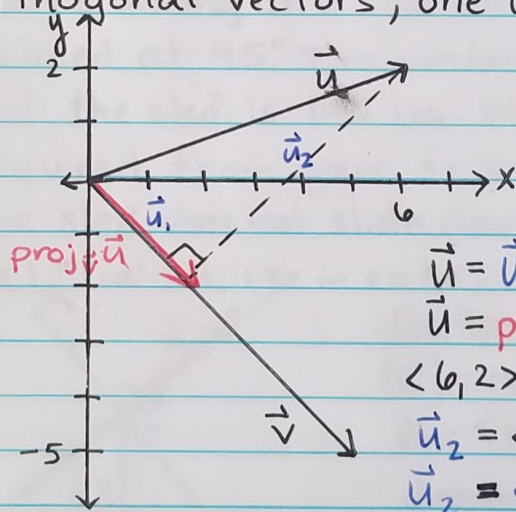 orthogonal vectors, one
y
2
u⃗
u⃗₂
x
u⃗₁
6
proj_v⃗ u⃗
u⃗ = u⃗
u⃗ = p
<6,2>
v⃗
-5
u⃗₂ =
u⃗₂ =